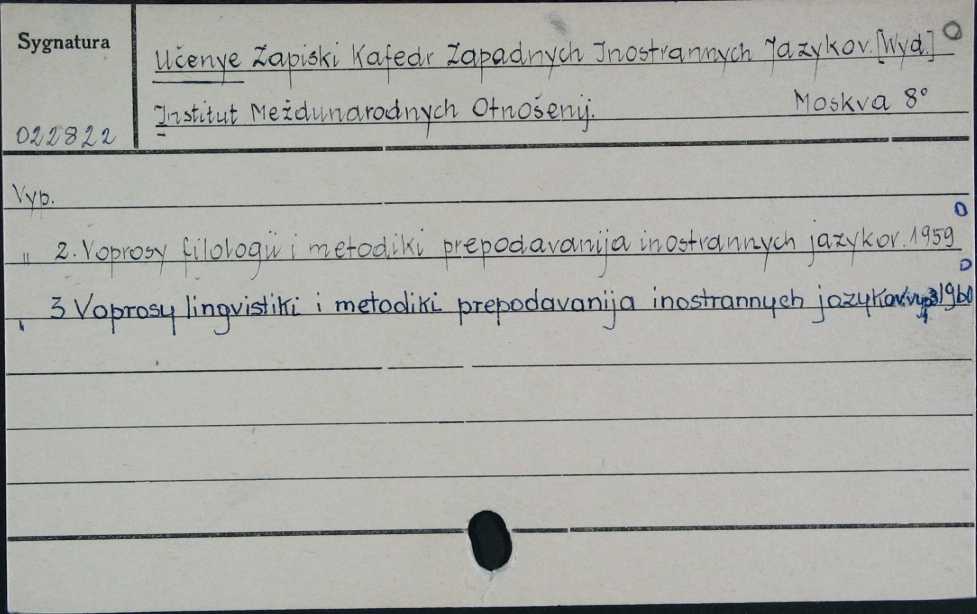 Sygnatura
Učenye Zapiski Kafedr Zapadnych Inostrannych Jazykov. [Wyd.]
Institut Meždunarodnych Otnošenij. Moskva 8°
022822
Vyp.
" 2. Voprosy filologii i metodiki prepodavanija inostrannych jazykov. 1959
" 3 Voprosy lingvistiki i metodiki prepodavanija inostrannych jazykov 1960